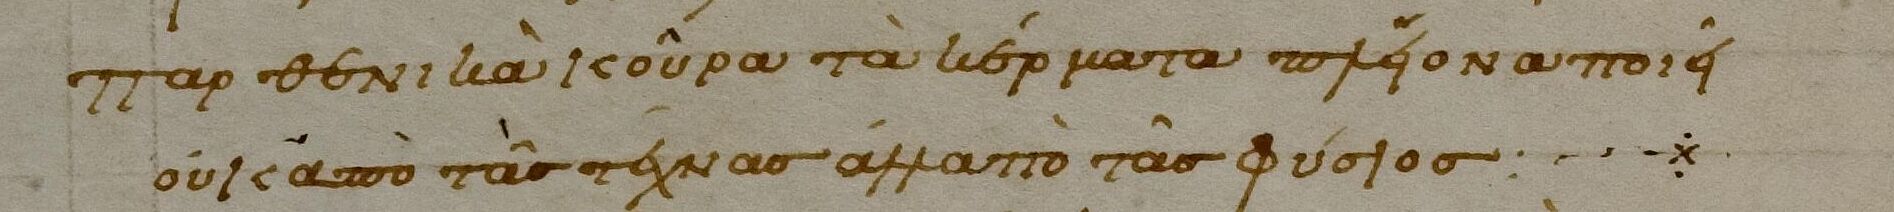 παρθενικὰ κοῦρα τὰ κέρματα πλήονα ποιῆ
οὐκ ἀπὸ τᾶς τέχνας ἀλλ' ἀπὸ τᾶς φύσιος :